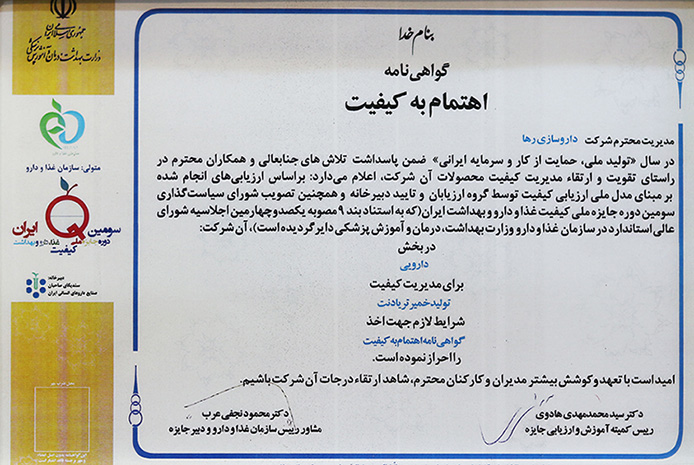 جمهوری اسلامی ایران
وزارت بهداشت، درمان و آموزش پزشکی
متولی: سازمان غذا و دارو
سومین
دوره
ایران
جایزه ملی
غذا، دارو و بهداشت
کیفیت
دبیرخانه:
سندیکای صاحبان
صنایع داروهای انسانی ایران
بنام خدا
گواهی نامه
اهتمام به کیفیت
مدیریت محترم شرکت داروسازی رها
در سال «تولید ملی، حمایت از کار و سرمایه ایرانی» ضمن پاسداشت تلاش های جنابعالی و همکاران محترم در
راستای تقویت و ارتقاء مدیریت کیفیت محصولات آن شرکت، اعلام می‌دارد: براساس ارزیابی‌های انجام شده
بر مبنای مدل ملی ارزیابی کیفیت توسط گروه ارزیابان و تایید دبیرخانه و همچنین تصویب شورای سیاست‌گذاری
سومین دوره جایزه ملی کیفیت غذا و دارو و بهداشت ایران (که به استناد بند ۹ مصوبه یکصد و چهارمین اجلاسیه شورای
عالی استاندارد در سازمان غذا و دارو وزارت بهداشت، درمان و آموزش پزشکی دایر گردیده است)، آن شرکت:
در بخش
دارویی
برای مدیریت کیفیت
تولید خمیر تریادنت
شرایط لازم جهت اخذ
گواهی نامه اهتمام به کیفیت
را احراز نموده است.
امید است با تعهد و کوشش بیشتر مدیران و کارکنان محترم، شاهد ارتقاء درجات آن شرکت باشیم.
دکتر سید محمد مهدی هادوی
رییس کمیته آموزش و ارزیابی جایزه
دکتر محمود نجفی عرب
مشاور رییس سازمان غذا و دارو و دبیر جایزه